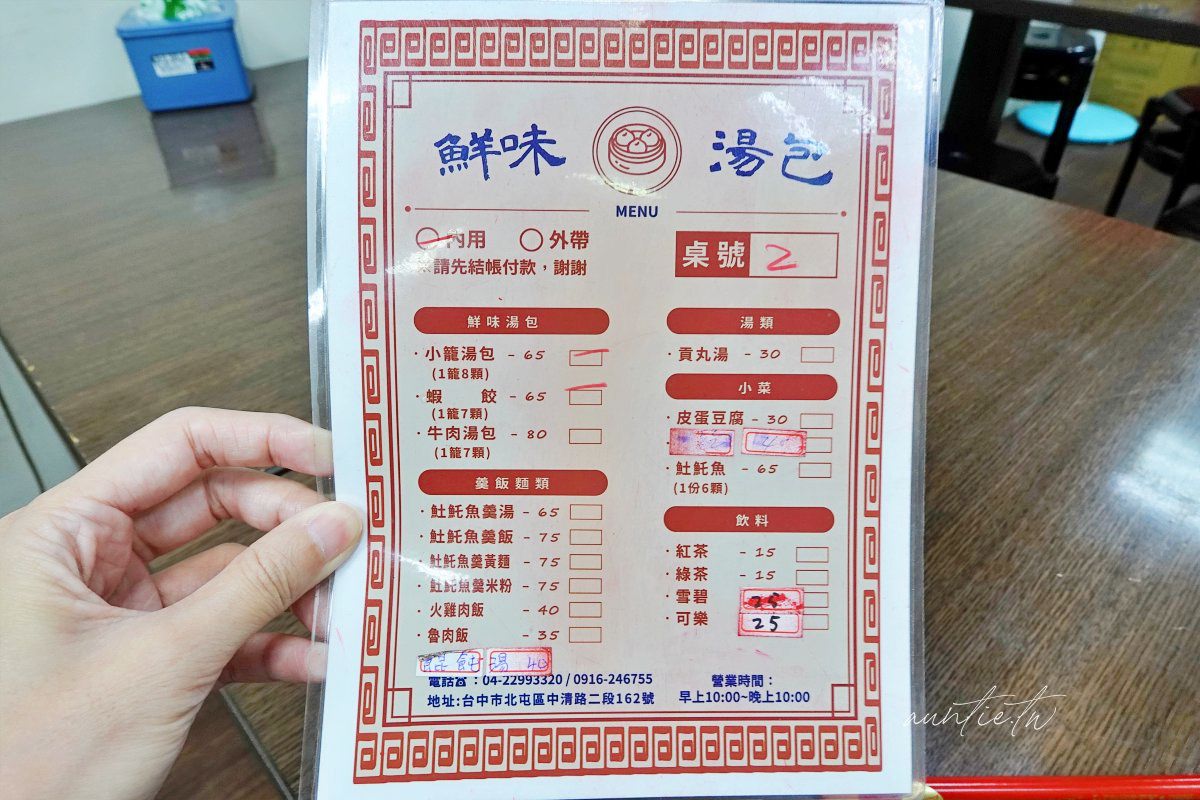 鮮味 湯包
MENU
內用 外帶
※請先結帳付款，謝謝
桌號 2
鮮味湯包
·小籠湯包 - 65
(1籠8顆)
·蝦 餃 - 65
(1籠7顆)
·牛肉湯包 - 80
(1籠7顆)
羹飯麵類
·魠魠魚羹湯 - 65
·魠魠魚羹飯 - 75
·魠魠魚羹黃麵 - 75
·魠魠魚羹米粉 - 75
·火雞肉飯 - 40
·魯肉飯 - 35
餛飩 湯 40
湯類
·貢丸湯 - 30
小菜
·皮蛋豆腐 - 30
·魠魠魚 - 65
(1份6顆)
飲料
·紅茶 - 15
·綠茶 - 15
·雪碧
·可樂 25
電話☎：04-22993320 / 0916-246755
地址:台中市北屯區中清路二段162號
營業時間：
早上10:00~晚上10:00
auntie.tw